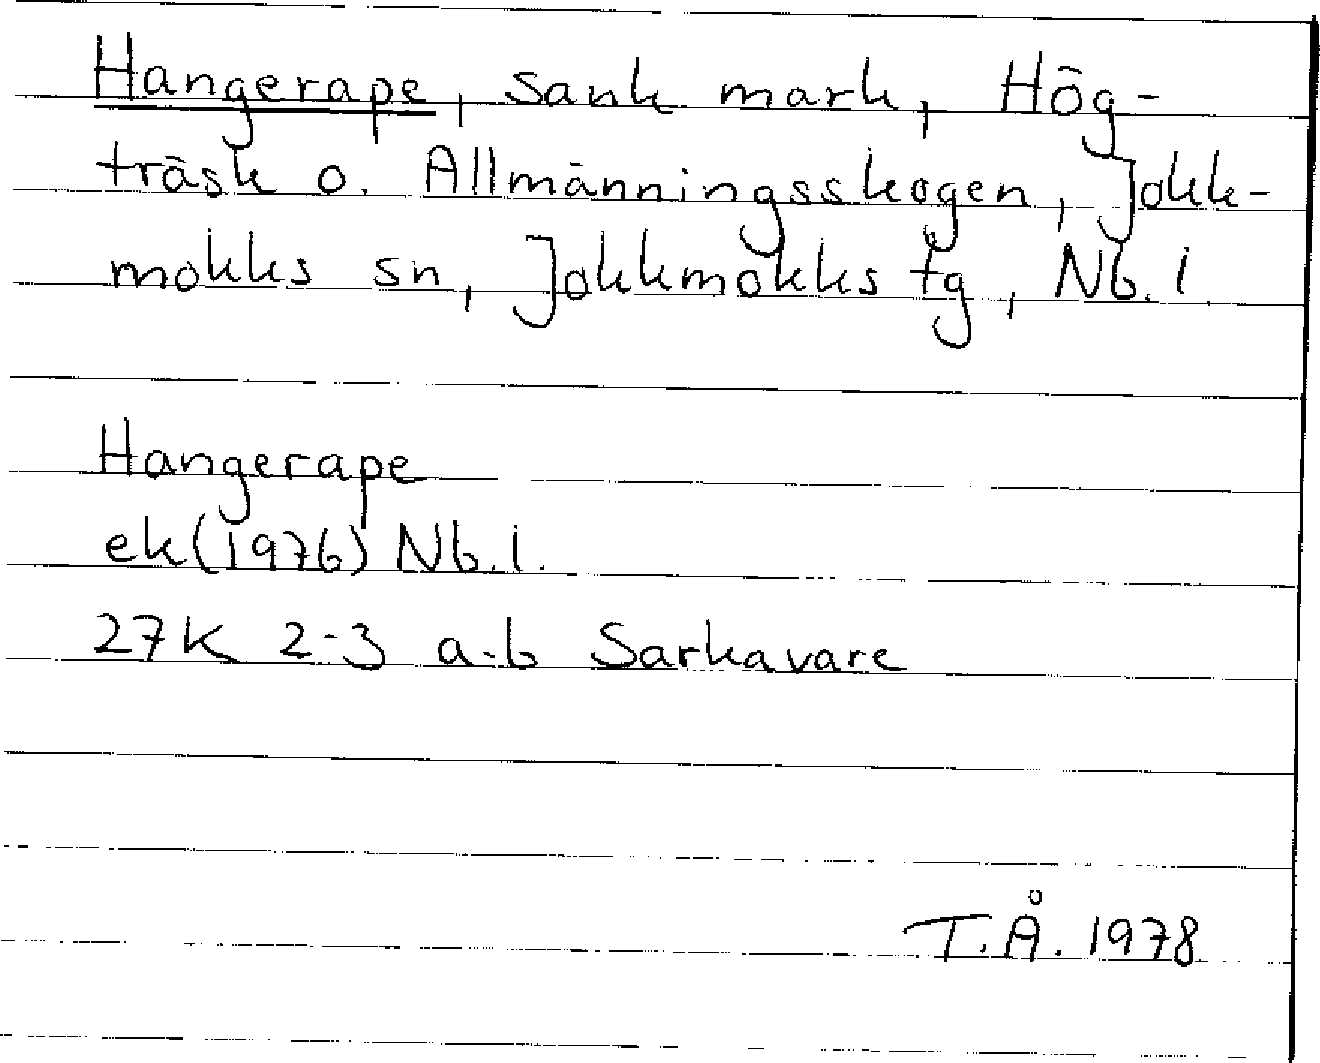 Hangerape, sank mark, Hög-
träsk o. Allmänningsskogen, Jokk-
mokks sn, Jokkmokks tg, Nb. l.
Hangerape
ek(1976) Nb. l.
27K 2-3 a-b Sarkavare
T.Å. 1978